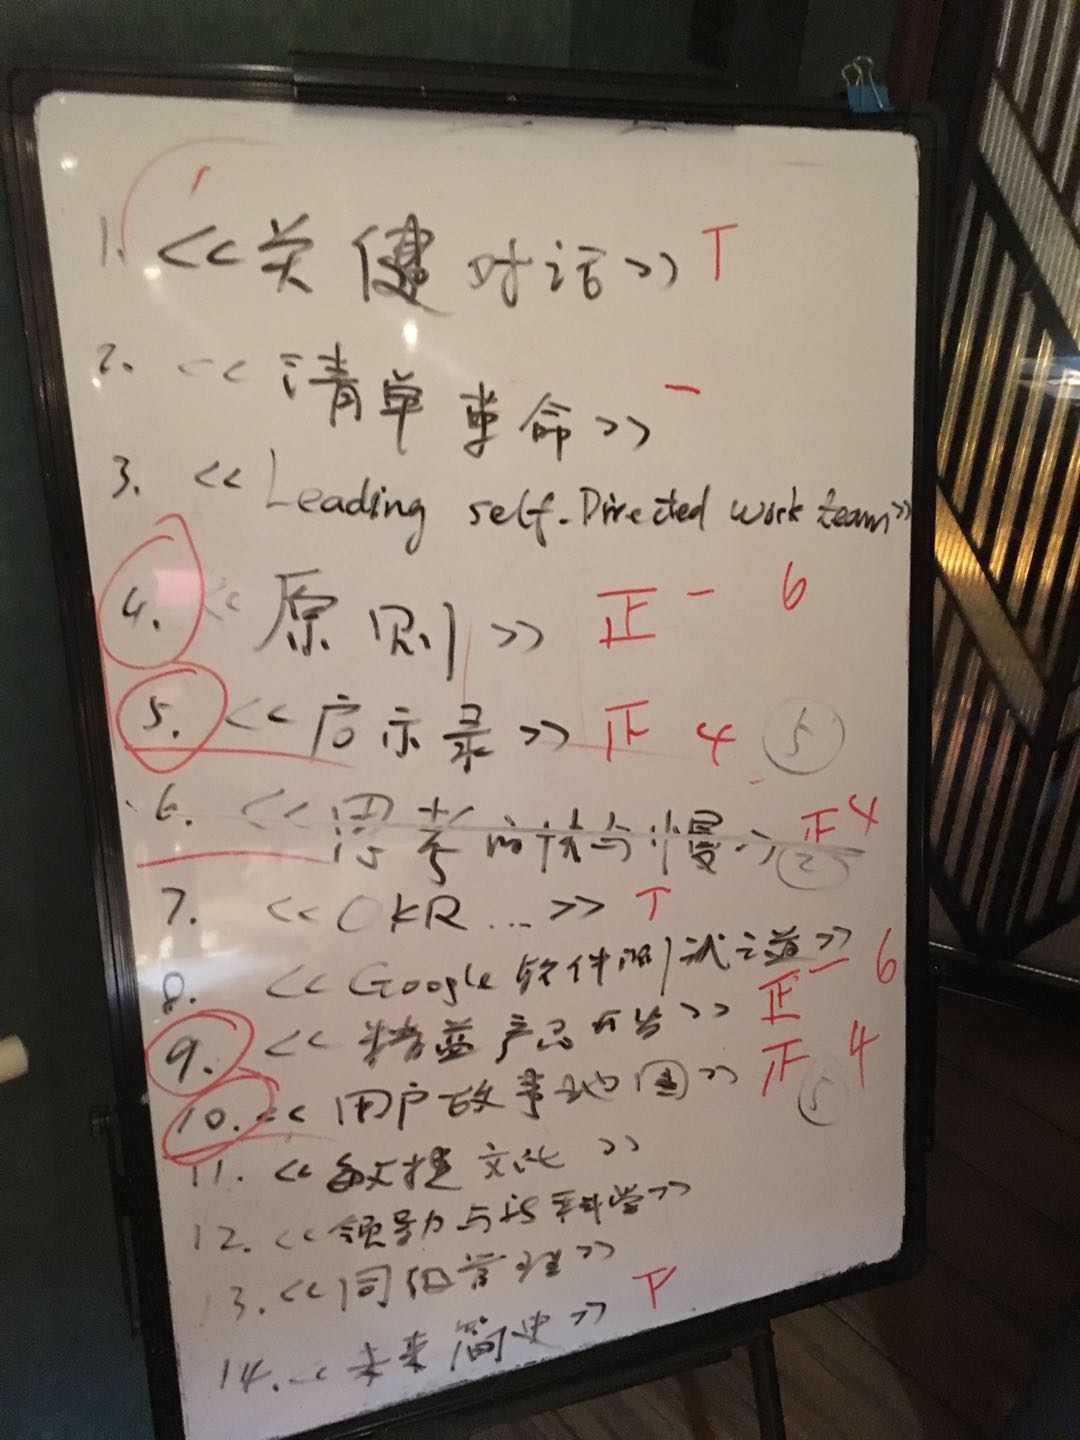 1. <<关健对话>> T
2. << 清单革命>> 一
3. << Leading self-Directed work team>>
4. << 原则>> 正一 6
5. <<启示录>> 正 4 5
6. <<思考的快与慢>> 正 4 25
7. <<OKR...>> T
8. <<Google 软件测试之道>>
9. <<精益产品开发>> 正一 6
10. <<用户故事地图>> 正 4 5
11. <<敏捷文化>>
12. <<领导力与新科学>>
13. <<同侪管理>>
14. <<未来简史>> 下